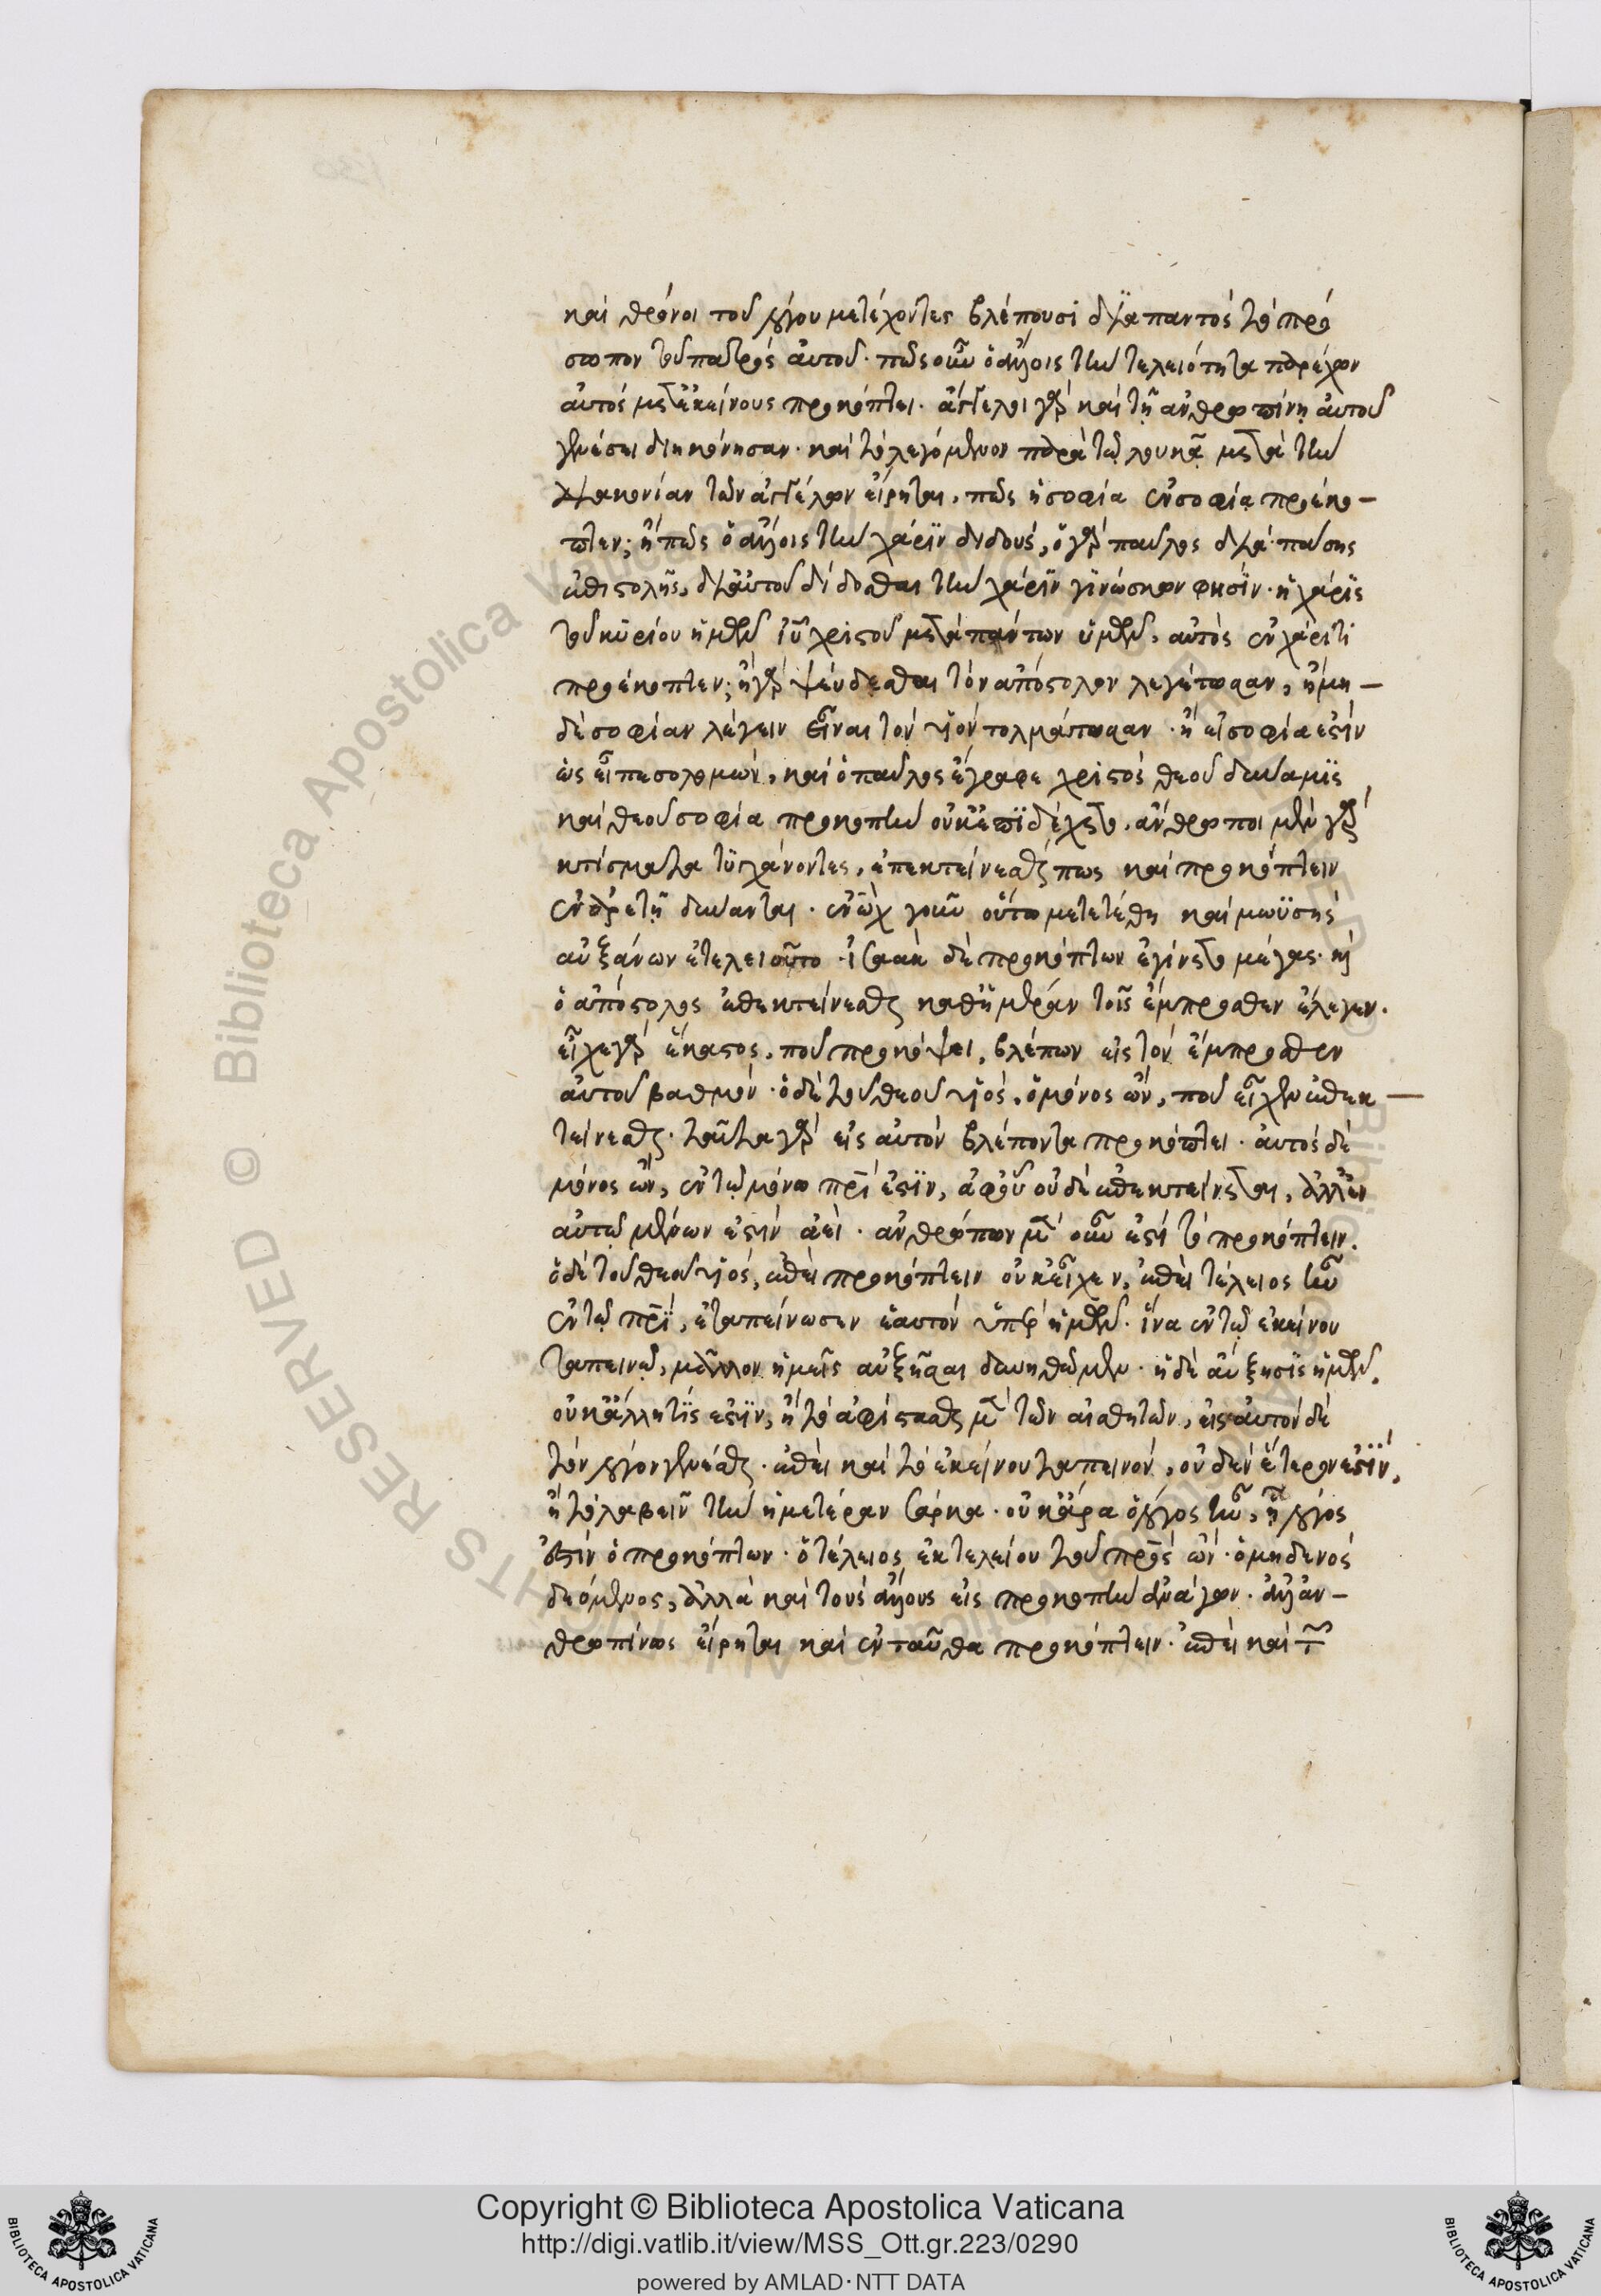 καὶ θρόνοι τοῦ λόγου μετέχοντες βλέπουσι διαπαντὸς τὸ πρό
σωπον τοῦ πατρὸς αὐτοῦ. πῶς οὖν ὁ ἄλλοις τὴν τελειότητα παρέχων
αὐτὸς μετ' ἐκείνους προκόπτει. ἄγγελοι γὰρ καὶ τῇ ἀνθρωπίνῃ αὐτοῦ
γενέσει διηκόνησαν. καὶ τὸ λεγόμενον παρὰ τῷ λουκᾷ μετὰ τὴν
διακονίαν τῶν ἀγγέλων εἴρηται. πῶς ἡ σοφία ἐν σοφίᾳ προέκο–
πτεν; ἢ πῶς ὁ ἄλλοις τὴν χάριν διδοὺς, ὁ γὰρ παῦλος διὰ πάσης
ἐπιστολῆς, δι' αὐτοῦ δίδοσθαι τὴν χάριν γινώσκων φησίν. ἡ χάρις
τοῦ κυρίου ἡμῶν ἰῦ χριστοῦ μετὰ πάντων ὑμῶν, αὐτὸς ἐν χάριτι
προέκοπτεν; ἢ γὰρ ψεύδεσθαι τὸν ἀπόστολον λεγέτωσαν, ἢ μη–
δὲ σοφίαν λέγειν εἶναι τὸν υἱὸν τολμάτωσαν. ἢ εἰ σοφία ἐστὶν
ὡς εἶπε σολομὼν, καὶ ὁ παῦλος ἔγραφε χριστὸς θεοῦ δύναμις
καὶ θεοῦ σοφία προκοπὴν οὐκ ἐπιδέχετο. ἄνθρωποι μὲν γὰρ
κτίσματα τυγχάνοντες, ἐπεκτείνεσθαί πως καὶ προκόπτειν
ἐν ἀρετῇ δύνανται. ἐνὼχ γοῦν οὕτω μετετέθη καὶ μωϋσῆς
αὐξάνων ἐτελειοῦτο. ἰσαὰκ δὲ προκόπτων ἐγίνετο μέγας. καὶ
ὁ ἀπόστολος ἐπεκτείνεσθαι καθ' ἡμέραν τοῖς ἔμπροσθεν ἔλεγεν.
εἶχε γὰρ ἕκαστος, ποῦ προκόψει, βλέπων εἰς τὸν ἔμπροσθεν
αὐτοῦ βαθμόν. ὁ δὲ τοῦ θεοῦ υἱὸς, ὁ μόνος ὢν, ποῦ εἶχεν ἐπεκ–
τείνεσθαι. ταῦτα γὰρ εἰς αὐτὸν βλέποντα προκόπτει. αὐτὸς δὲ
μόνος ὢν, ἐν τῷ μόνῳ πρὶ ἐστιν, ἀφ' οὗ οὐδὲ ἐπεκτείνεται, ἀλλ' ἐν
αὐτῷ μένων ἐστὶν ἀεί. ἀνθρώπων μὲν οὖν ἐστὶ τὸ προκόπτειν.
ὁ δὲ τοῦ θεοῦ υἱὸς, ἐπεὶ προκόπτειν οὐκ εἶχεν, ἐπεὶ τέλειος ἦν
ἐν τῷ πρὶ, ἐταπείνωσεν ἑαυτὸν ὑπὲρ ἡμῶν. ἵνα ἐν τῷ ἐκείνου
ταπεινῷ, μᾶλλον ἡμεῖς αὐξῆσαι δυνηθῶμεν. ἡ δὲ αὔξησις ἡμῶν,
οὐκ ἄλλη τίς ἐστιν, ἢ τὸ ἀφίστασθαι μὲν τῶν αἰσθητῶν, εἰς αὐτὸν δὲ
τὸν λόγον γενέσθαι. ἐπεὶ καὶ τὸ ἐκείνου ταπεινὸν, οὐδὲν ἕτερον ἐστίν,
ἢ τὸ λαβεῖν τὴν ἡμετέραν σάρκα. οὐκ ἄρα ὁ λόγος ἦν, ᾗ λόγος
ἐστὶν ὁ προκόπτων. ὁ τέλειος ἐκ τελείου τοῦ πρὸς ὤν. ὁ μηδενὸς
δεόμενος, ἀλλὰ καὶ τοὺς ἄλλους εἰς προκοπὴν ἀνάγων. ἀλλ' ἀν–
θρωπίνως εἴρηται καὶ ἐνταῦθα προκόπτειν. ἐπεὶ καὶ τῶν
Copyright © Biblioteca Apostolica Vaticana
http://digi.vatlib.it/view/MSS_Ott.gr.223/0290
powered by AMLAD·NTT DATA